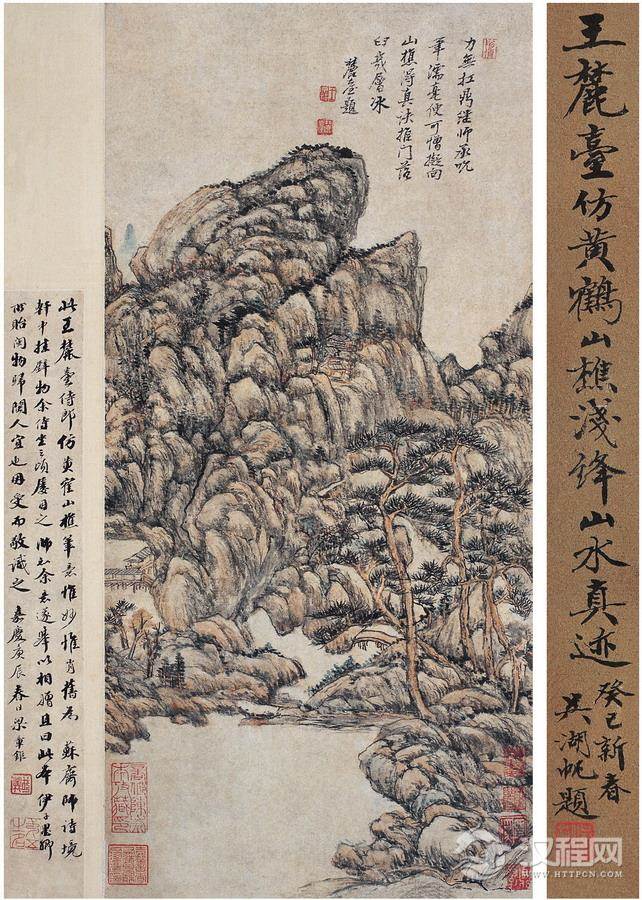 王麓臺仿黃鶴山樵淺絳山水真迹
癸巳新春
吳湖帆題
力無扛鼎繼師承吮
筆濡毫使可憎擬向
山樵得真訣推門落
臼幾層冰
麓臺題
此王麓臺侍郎仿黃隺山樵筆意惟妙惟肖舊爲 蘇齋師詩境
軒中挂壁物余侍坐之頃屢目之師知余意遂舉以相贈且曰此本伊子墨卿
所貽閩物歸閩人宜也因受而敬識之 嘉慶庚辰春日梁章鉅
汉程网
WWW.HTTPCN.COM